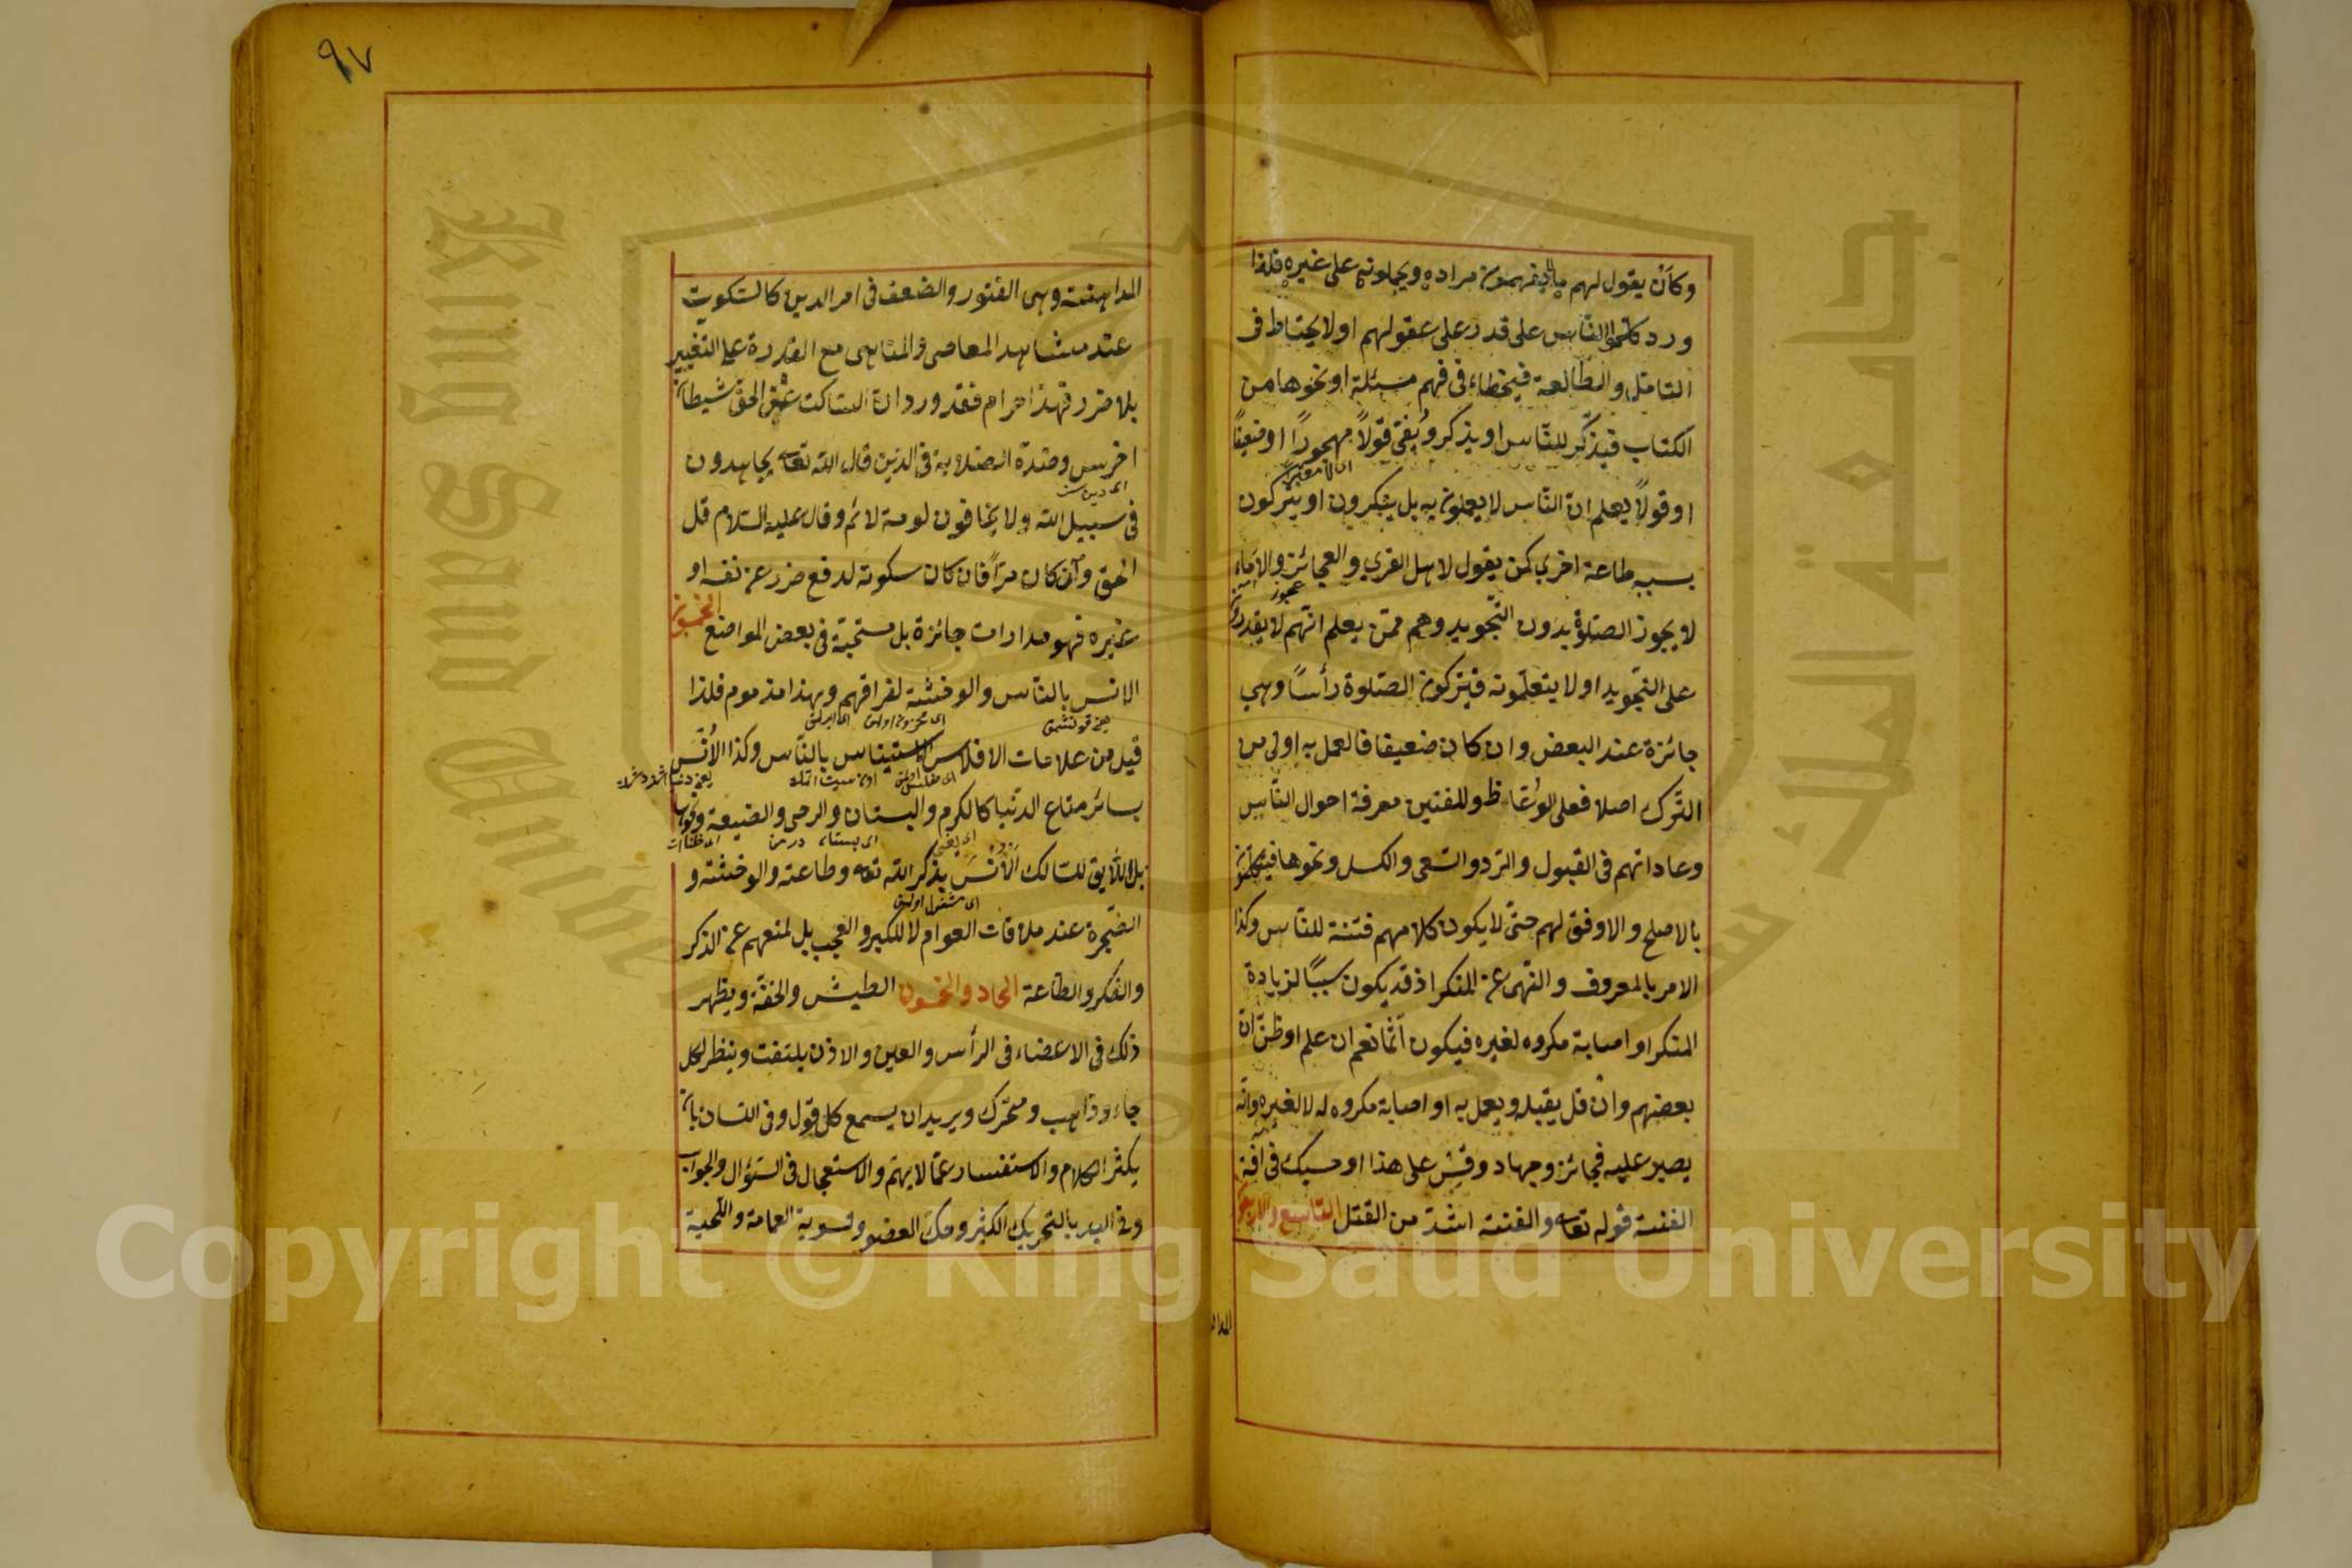 وكأن يقول لهم ما لا يفهمون مراده ويحملونه على غيره فلذا
ورد كلموا الناس على قدر على عقولهم او لا يحتاط فى
التامل والمطالعة فيخطاء فى فهم مسئلة او نحوها من
الكتاب فيذكر للناس او يذكر ويفتى قولاً مهجوراً او ضعيفاً
او قولاً يعلم ان الناس لا يعملون به بل ينكرون او يتركون
بسببه طاعة اخرى كمن يقول لاهل القرى والعجائز والاماء
عجوز
لا يجوز الصلوة بدون التجويد وهم ممن يعلم انهم لا يقدرون
على التجويد او لا يتعلمونه فيتركون الصلوة رأساً وهى
جائزة عند البعض وان كان ضعيفا فالعمل به اولى من
الترك اصلا فعلى الوعاظ والمفتين معرفة احوال الناس
وعاداتهم فى القبول والرد والسعى والكسل ونحوها فيتكلمون
بالاصلح والاوفق لهم حتى لا يكون كلامهم فتنة للناس وكذا
الامر بالمعروف والنهى عن المنكر اذ قد يكون سبباً لزيادة
المنكر او اصابة مكروه لغيره فيكون آثما نعم ان علم او ظن ان
بعضهم وان قل يقبله ويعمل به او اصابة مكروه له لا لغيره وانه
يصبر عليه فجائز وجهاد وقس على هذا او حسبك فى آفة
الفتنة قوله تعالى والفتنة اشد من القتل التاسع والاربعون
المدا
٩٧
المداهنة وهى الفتور والضعف فى امر الدين كالسكوت
عند مشاهد المعاصى والمناهى مع القدرة على التغيير
بلا ضرر فهذا حرام فقد ورد ان الساكت عن الحق شيطان
اخرس وضدة الصلابة فى الدين قال الله تعالى يجاهدون
فى سبيل الله ولا يخافون لومة لائم وقال عليه السلام قل
الحق وان كان مرّاً فان كان سكوته لدفع ضرر عن نفسه او
غيره فهو مدارات جائزة بل مستحبة فى بعض المواضع الخمسون
الانس بالناس والوحشة لفراقهم وهذا مذموم فلذا
قيل من علامات الافلاس الاستيناس بالناس وكذا الأنس
بسائر متاع الدنيا كالكرم والبستان والرحى والضيعة ونحوها
بل اللايق للسالك الأنس بذكر الله تعالى وطاعته والوحشة و
الضجرة عند ملاقات العوام لا للكبر والعجب بل لمنعهم عن الذكر
والفكر والطاعة الحاد والخمسون الطيش والخفة ويظهر
ذلك فى الاعضاء فى الرأس والعين والاذن يلتفت وينظر لكل
جاء وذاهب ومحرك ويريد ان يسمع كل قول وفى اللسان بان
يكثر الكلام والاستفسار عما لا يهم والاستعجال فى السؤال والجواب
وفى اليد بالتحريك الكثير وحك العضو وتسوية العمامة واللحية
Copyright © King Saud University